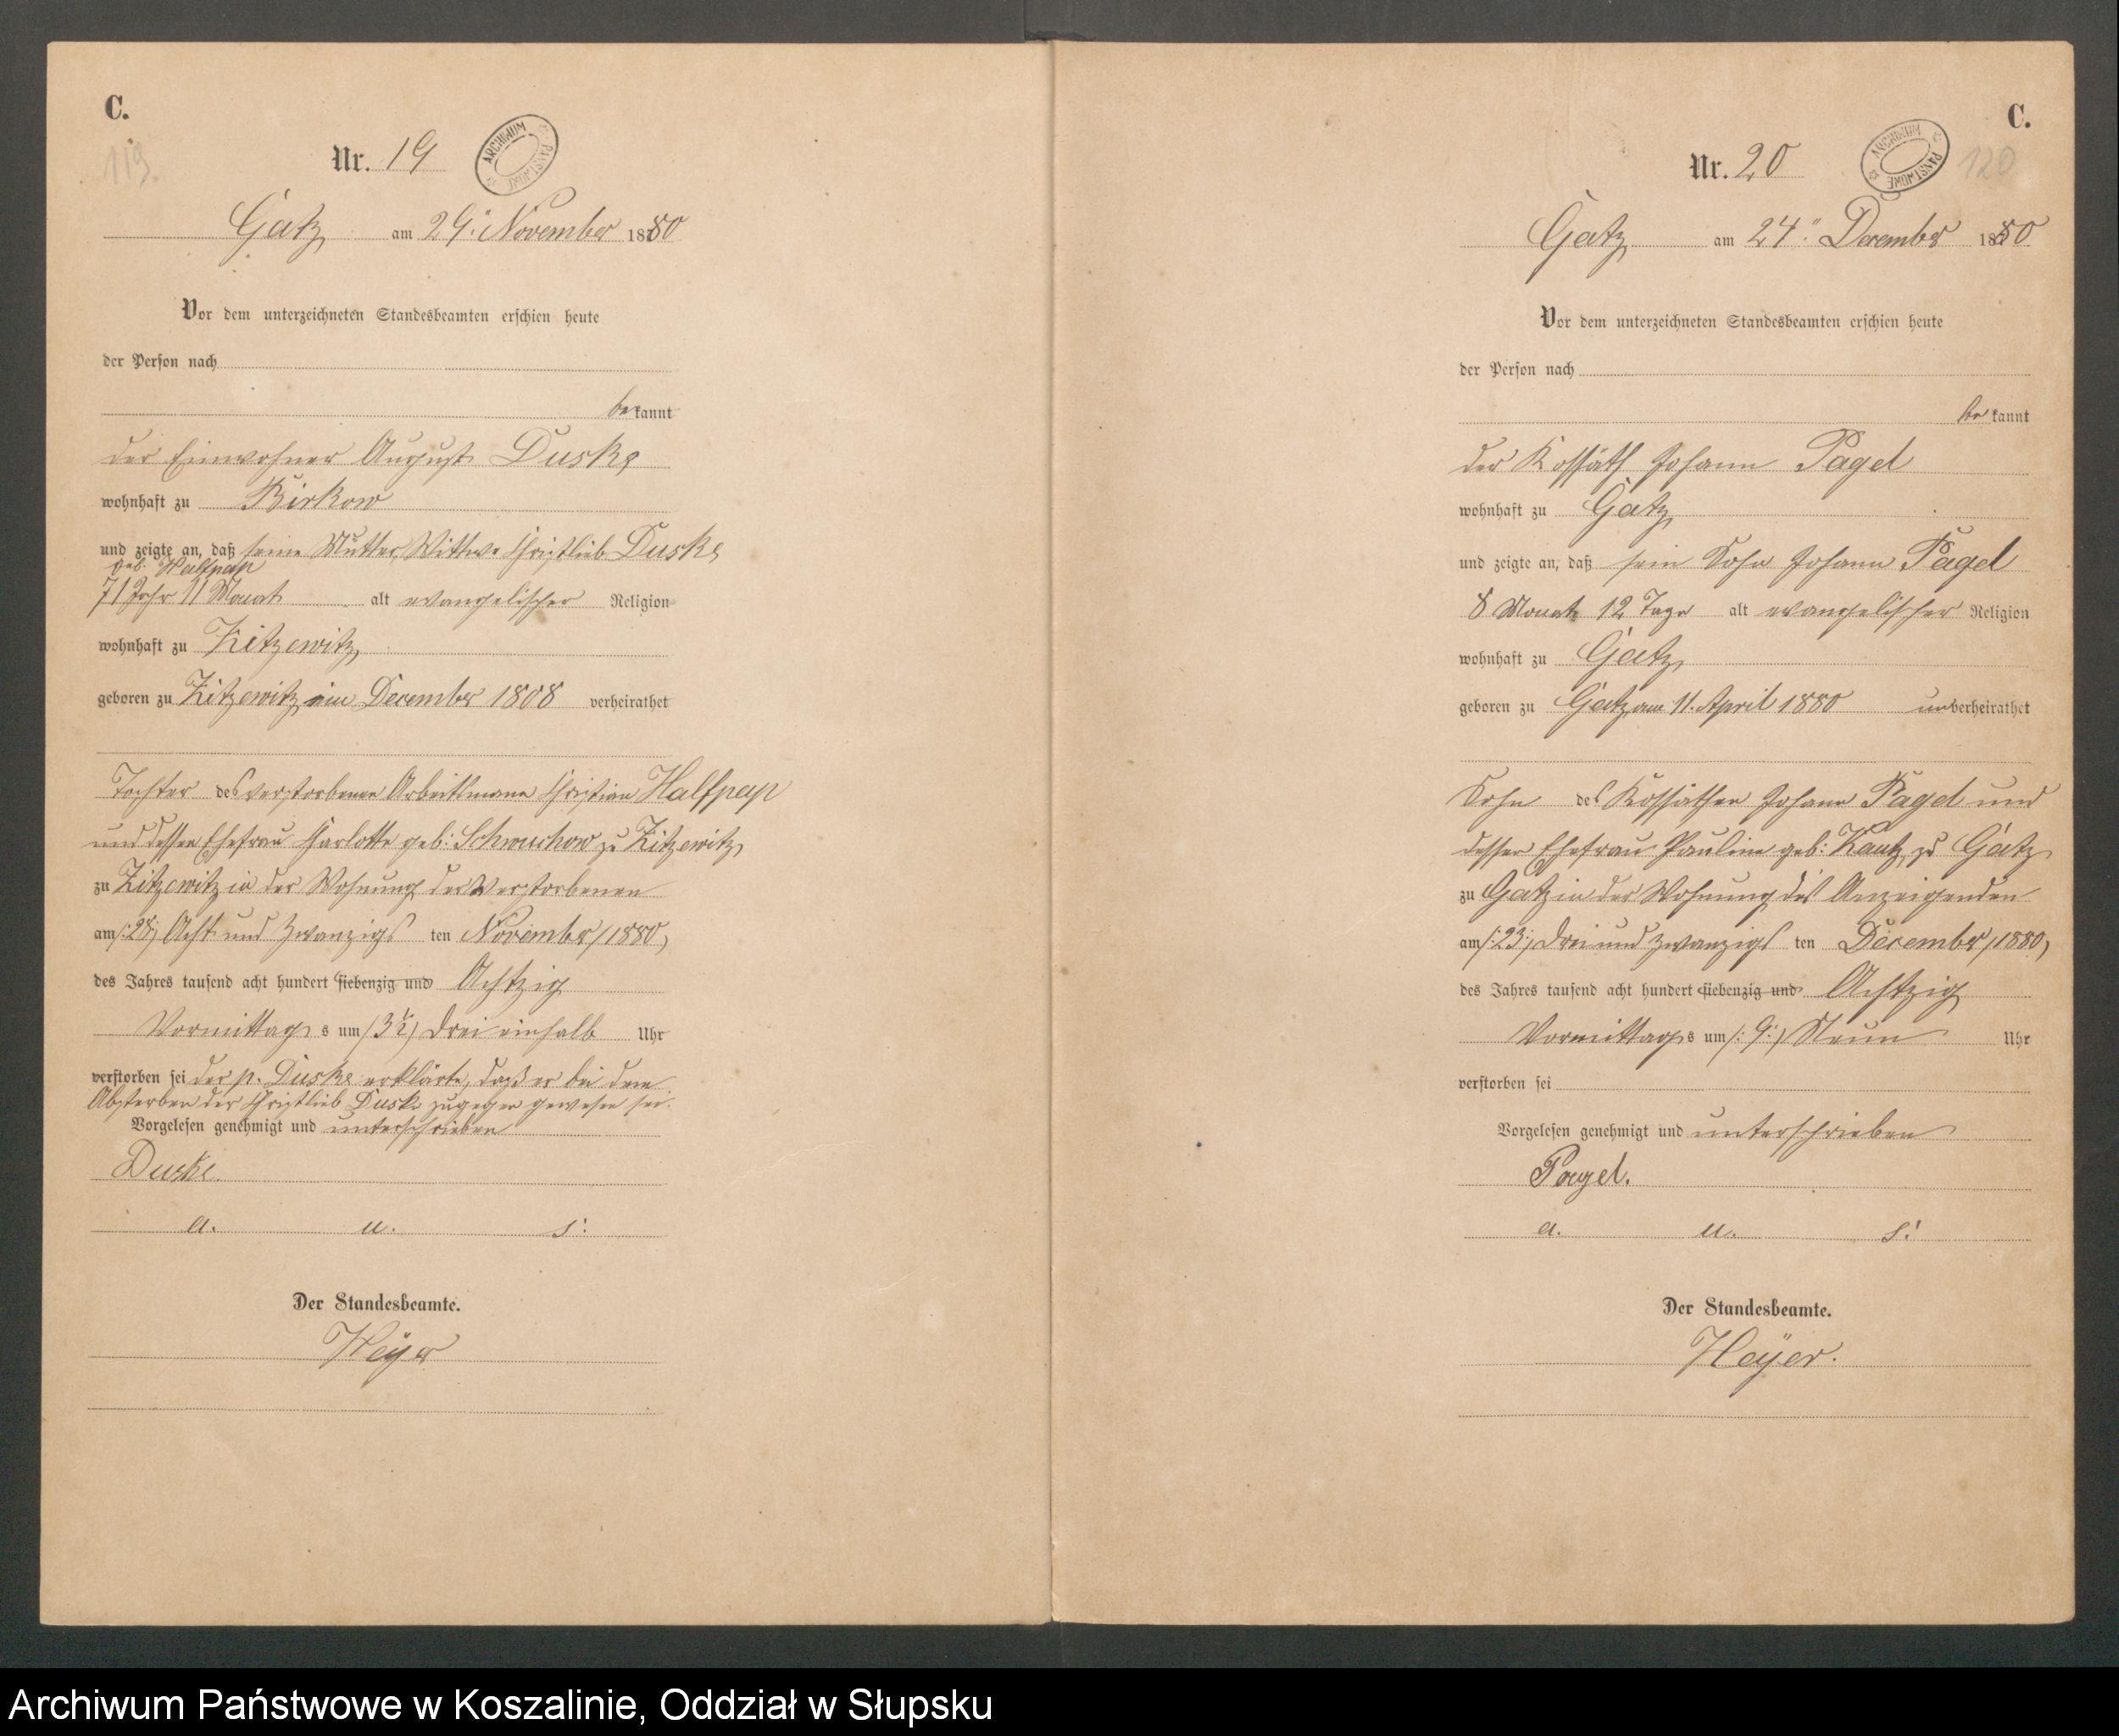 C.
113.
Nr. 19
ARCHIWUM PAŃSTWOWE
Gatz am 29. November 1880
Vor dem unterzeichneten Standesbeamten erschien heute
der Person nach
bekannt
der Einwohner August Duske
wohnhaft zu Birkow
und zeigte an, daß seine Mutter, Wittwe Christlieb Duske
geb. Halfpap
71 Jahr 11 Monat alt evangelischer Religion
wohnhaft zu Zitzewitz
geboren zu Zitzewitz im December 1808 verheirathet
Tochter des verstorbenen Arbeitsmann Christian Halfpap
und dessen Ehefrau Charlotte geb: Schwuchow zu Zitzewitz
zu Zitzewitz in der Wohnung der Verstorbenen
am /:28:/ Acht und Zwanzigs ten November /1880/
des Jahres tausend acht hundert siebenzig und Achtzig
Vormittags um /3½/ drei einhalb Uhr
verstorben sei der p. Duske erklärte, daß er bei dem
Absterben der Christlieb Duske zugegen gewesen sei.
Vorgelesen genehmigt und unterschrieben
Duske.
a. u. s.
Der Standesbeamte.
Heyer
C.
120
Nr. 20
ARCHIWUM PAŃSTWOWE
Gatz am 24. December 1880
Vor dem unterzeichneten Standesbeamten erschien heute
der Person nach
bekannt
der Kossäth Johann Pagel
wohnhaft zu Gatz
und zeigte an, daß sein Sohn Johann Pagel
8 Monate 12 Tage alt evangelischer Religion
wohnhaft zu Gatz
geboren zu Gatz am 11. April 1880 unverheirathet
Sohn des Kossäthen Johann Pagel und
dessen Ehefrau Pauline geb: Kautz zu Gatz
zu Gatz in der Wohnung des Anzeigenden
am /:23:/ drei und zwanzigs ten December /1880/
des Jahres tausend acht hundert siebenzig und Achtzig
Vormittags um /:9:/ Neun Uhr
verstorben sei
Vorgelesen genehmigt und unterschrieben
Pagel.
a. u. s.
Der Standesbeamte.
Heyer.
Archiwum Państwowe w Koszalinie, Oddział w Słupsku